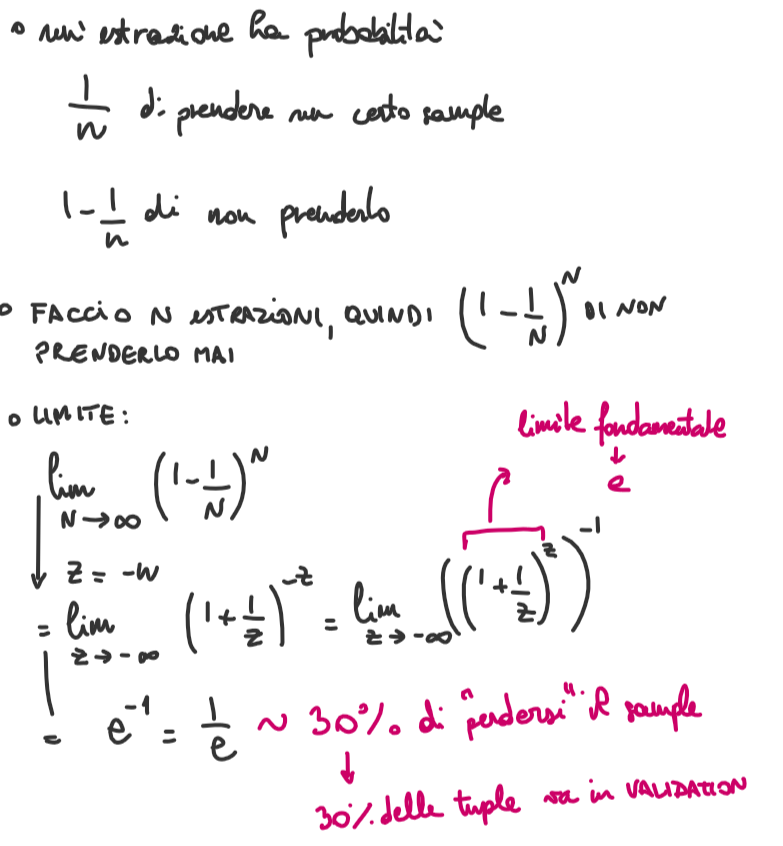 • un'estrazione ha probabilità
1/n di prendere un certo sample
1-1/n di non prenderlo
• FACCIO N ESTRAZIONI, QUINDI (1-1/N)^N DI NON
PRENDERLO MAI
• LIMITE:
limite fondamentale
↓
e
lim N→∞ (1-1/N)^N
↓ z = -N
= lim z→-∞ (1+1/z)^-z = lim z→-∞ ((1+1/z)^z)^-1
= e^-1 = 1/e ~ 30% di "perdersi" il sample
↓
30% delle tuple va in VALIDATION